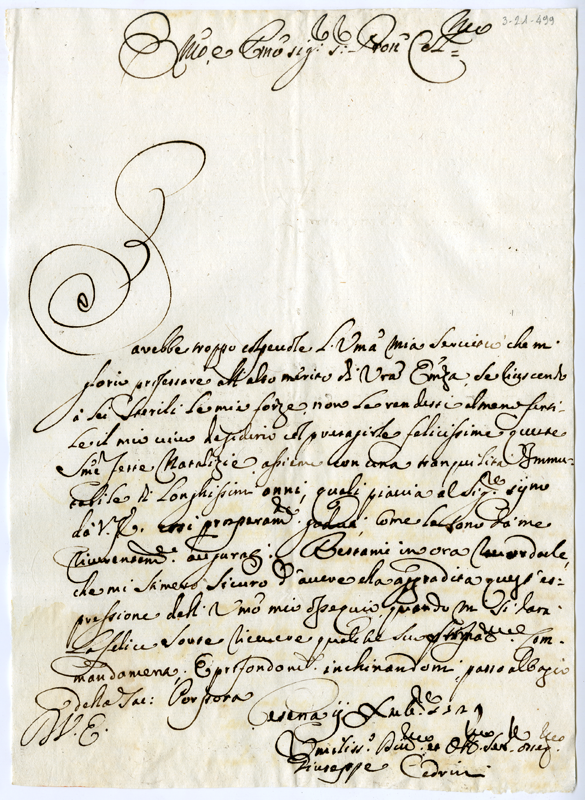 3-21-499
Emo, e Rmo sig:r s:r Pron Col=mo
Sarebbe troppo colpevole l'Umma mia Servitù che m
glorio professare all'alto merito di Vra Emza, se riuscendo
à Lei sterili le mie forze, non la rendessi almeno ferti-
le il mio vivo desiderio col presagirle felicissime queste
Sme feste Natalizie assieme con una tranquilità Immu-
tabile di longhissimi anni, quali piaccia al Sige. signo
da V. E. essi prosperamte godua: come le sono da me
riverentemte augurati. Restami in ora
che mi stimerò sicuro d'avere ella aggradita quest'es-
pressione dell'Umo mio ossequio, quando m si darà
la felice sorte ricevere qualche suo Com-
mandamento. E profondamte. inchinandomi passo al bagio
della Sac: Porpora
D V. E.
Cesena ij Xmbre
Umiliss:o Divmo et Obblmo Servre osseqmo
Giuseppe Cedrini